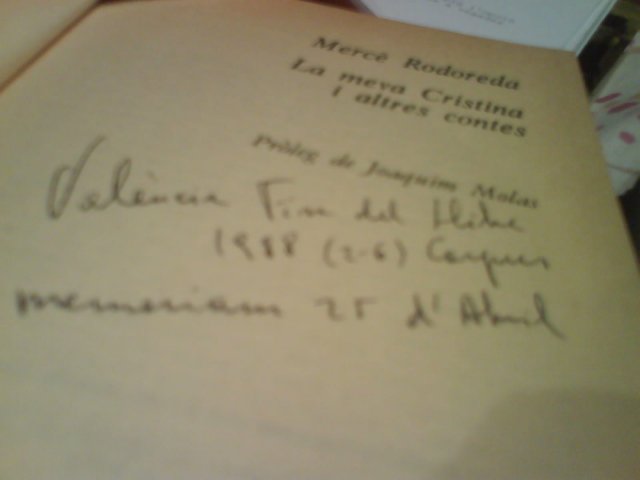 Mercè Rodoreda
La meva Cristina
i altres contes
Pròleg de Joaquim Molas
València Fira del Llibre
1988 (2-6)
memoriam 25 d'Abril